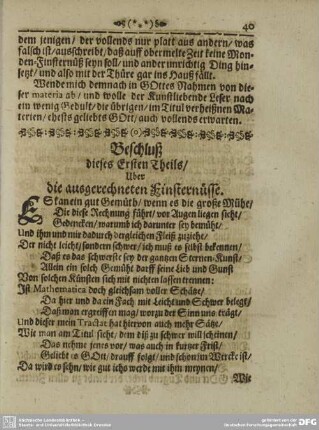 40
dem jenigen/ der vollends nur platt aus andern/ was
falsch ist/ ausschreibt/ daß auff obermelte Zeit keine Mon-
den-Finsternüß seyn soll/ und ander unrichtig Ding hin-
setzt/ und also mit der Thüre gar ins Hauß fällt.
Wende mich demnach in GOttes Nahmen von die-
ser materia ab/ und wolle der Kunstliebende Leser nach
ein wenig Gedult/ die übrigen/ im Titul verheißnen Ma-
terien/ ehests geliebts GOtt/ auch vollends erwarten.
Beschluß
dieses Ersten Theils/
Uber
die ausgerechneten Finsternüsse.
ES kan ein gut Gemüth/ wenn es die große Mühe/
Die diese Rechnung führt/ vor Augen liegen sieht/
Gedencken/ warumb ich darunter sey bemüht/
Und ihn und mir dadurch dergleichen Fleiß zuziehe/
Der nicht leicht/ sondern schwer/ ich muß es selbst bekennen/
Daß es das schwerste sey der gantzen Sternen-Kunst/
Allein ein solch Gemüth darff seine Lieb und Gunst
Von solchen Künsten sich mit nichten lassen trennen:
Ist Mathematica doch gleichsam voller Schätze/
Da hier und da ein Fach mit Leicht und Schwer belegt/
Daß man ergreiffen mag/ worzu der Sinn uns trägt/
Und dieser mein Tractat hat hiervon auch mehr Sätze/
Wie man am Titul sieht/ dem diß zu schwer will scheinen/
Das nehme jenes vor/ was auch in kurtzer Frist/
Geliebt es GOtt/ drauff folgt/ und schon im Wercke ist/
Da wird er sehn/ wie gut ichs werde mit ihm meynen/
Wie